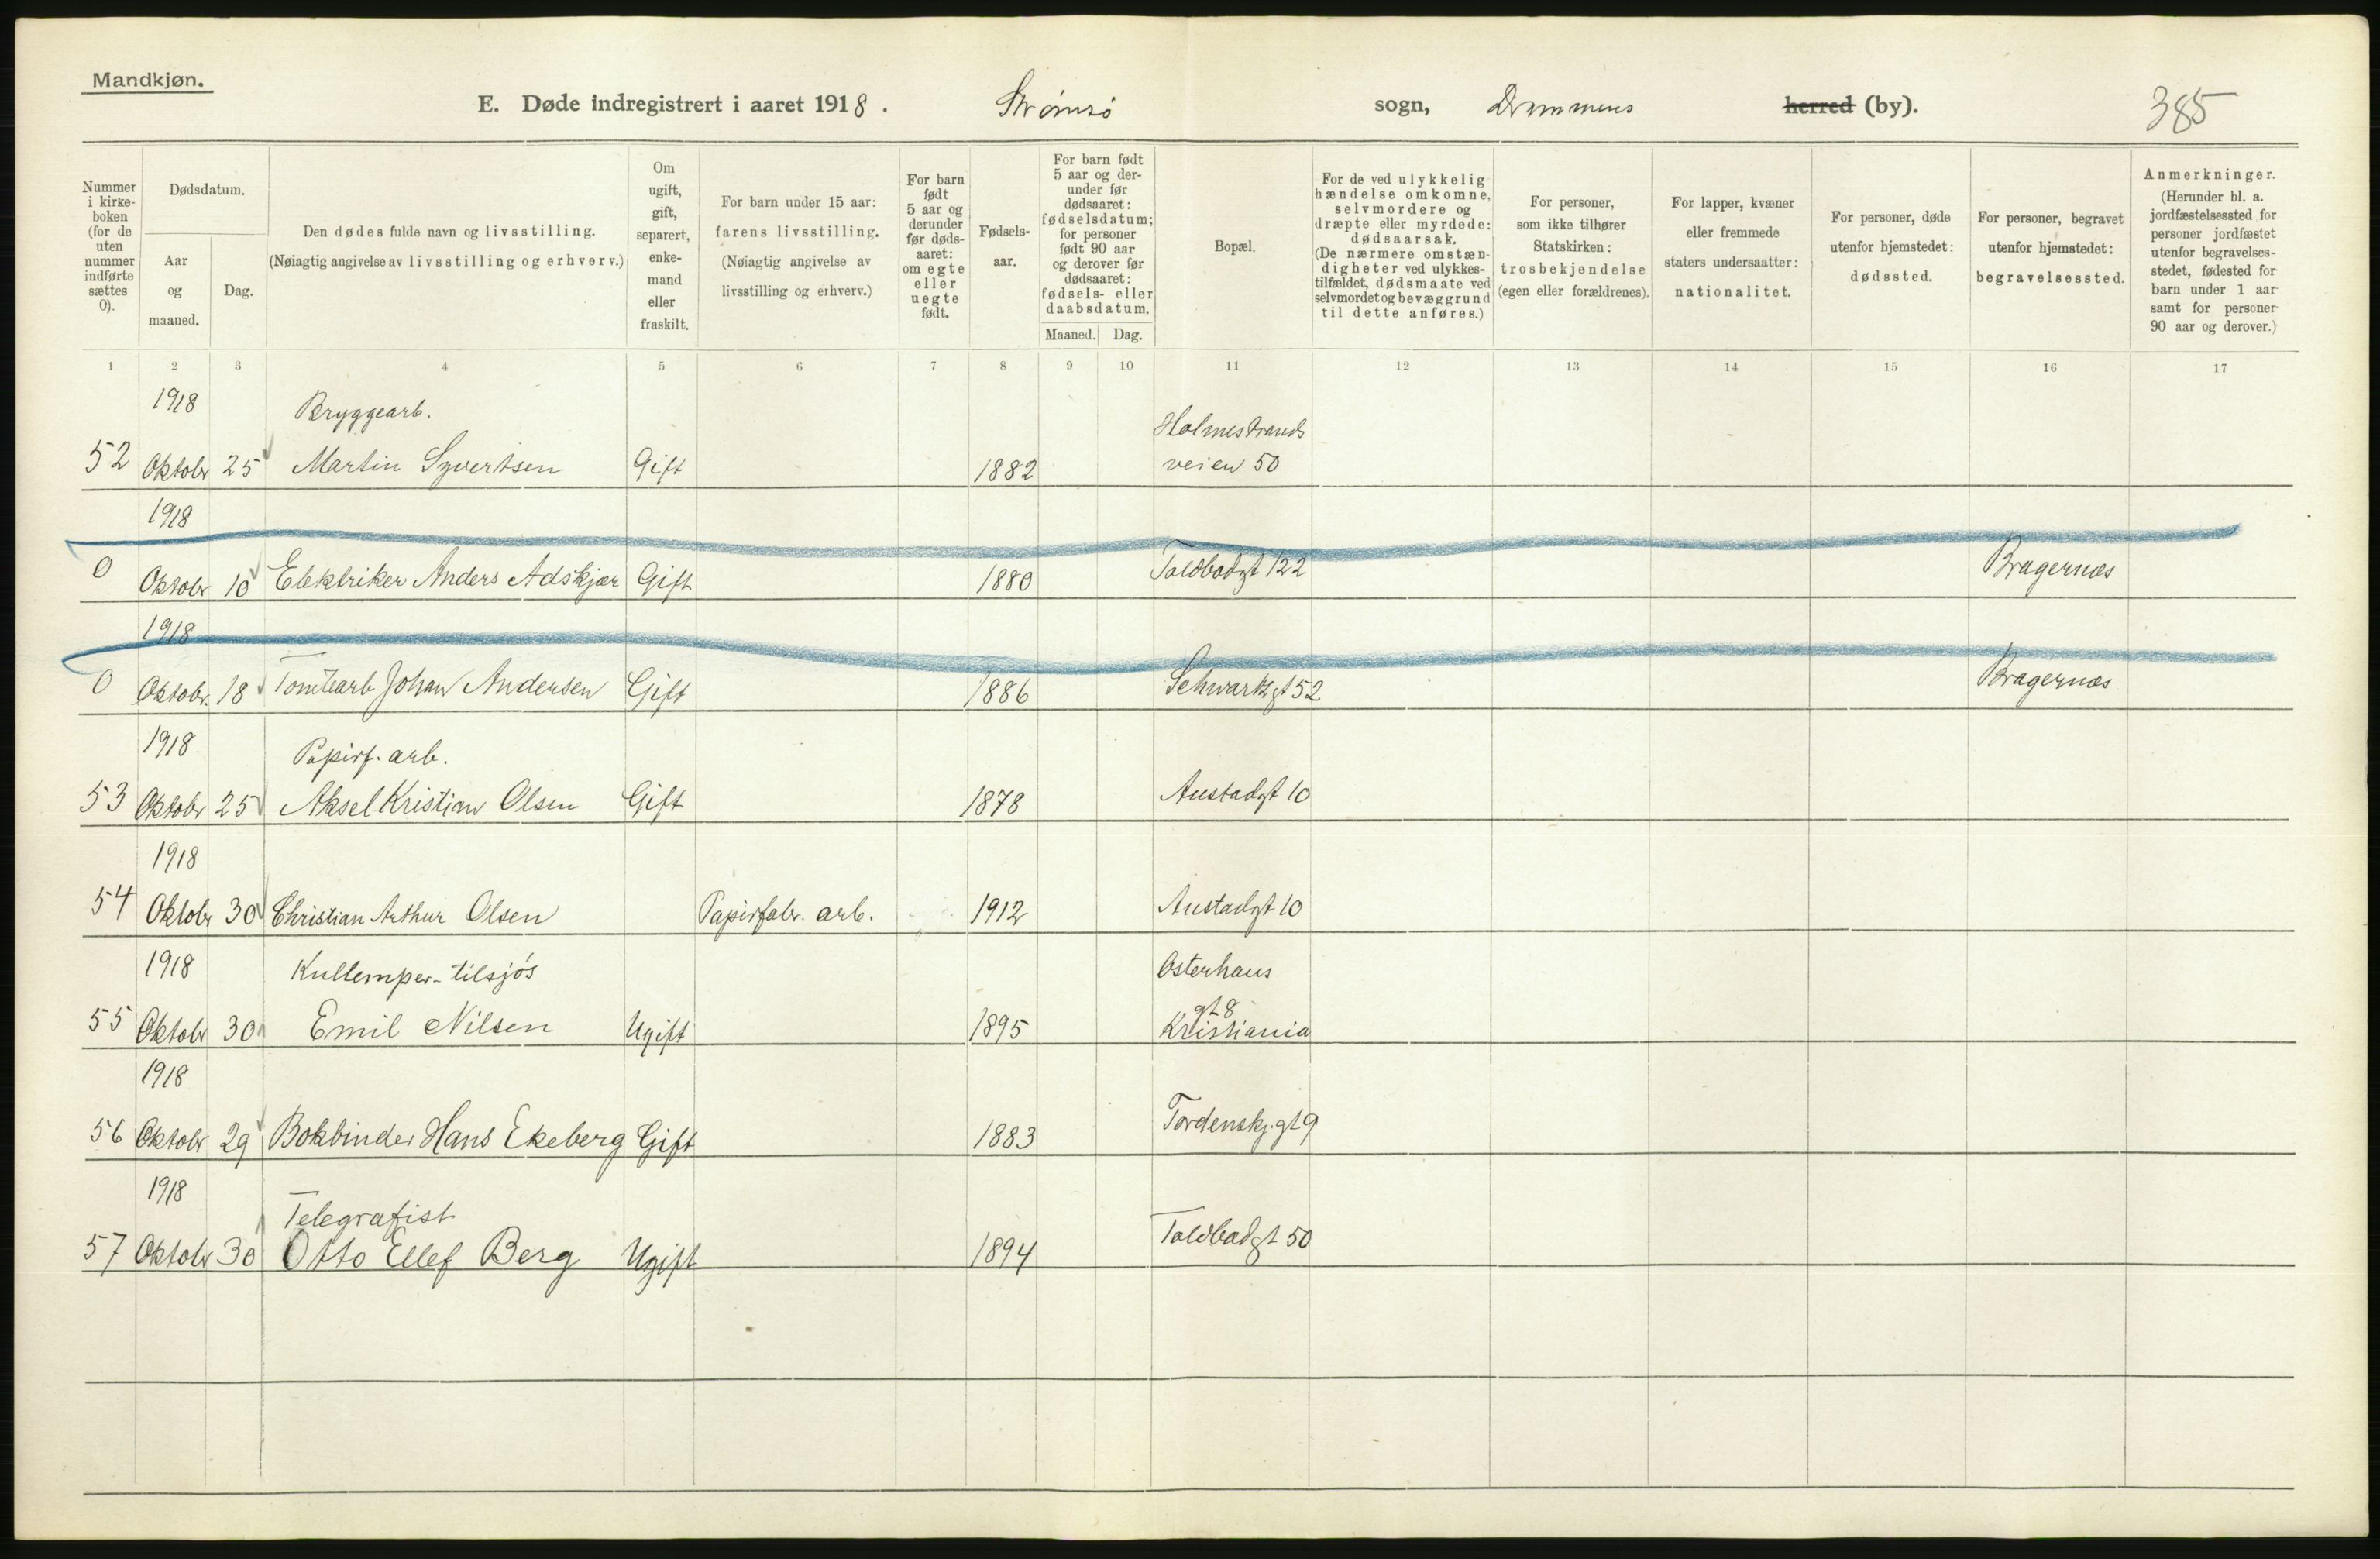 Mandkjøn.
E. Døde indregistrert i aaret 1918. Strømsø sogn, Drammens herred (by). 385
Nummer i kirke-boken (for de uten nummer indførte sættes 0).
Dødsdatum.
Aar og maaned.
Dag.
Den dødes fulde navn og livsstilling.
(Nøiagtig angivelse av livsstilling og erhverv.)
Om ugift, gift, separert, enke-mand eller fraskilt.
For barn under 15 aar: farens livsstilling.
(Nøiagtig angivelse av livsstilling og erhverv.)
For barn født 5 aar og derunder før døds-aaret: om egte eller uegte født.
Fødsels-aar.
For barn født 5 aar og der-under før dødsaaret: fødselsdatum; for personer født 90 aar og derover før dødsaaret: fødsels- eller daabsdatum.
Maaned. Dag.
Bopæl.
For de ved ulykkelig hændelse omkomne, selvmordere og dræpte eller myrdede: dødsaarsak.
(De nærmere omstæn-digheter ved ulykkes-tilfældet, dødsmaate ved selvmordet og bevæggrund til dette anføres.)
For personer, som ikke tilhører Statskirken: trosbekjendelse (egen eller forældrenes).
For lapper, kvæner eller fremmede staters undersaatter: nationalitet.
For personer, døde utenfor hjemstedet: dødssted.
For personer, begravet utenfor hjemstedet: begravelsessted.
Anmerkninger.
(Herunder bl. a. jordfæstelsessted for personer jordfæstet utenfor begravelses-stedet, fødested for barn under 1 aar samt for personer 90 aar og derover.)
1 2 3 4 5 6 7 8 9 10 11 12 13 14 15 16 17
1918 Bryggearb. Holmestrands
52 Oktobr 25 Martin Syvertsen Gift 1882 veien 50
1918
0 Oktobr 10 Elektriker Anders Adskjær Gift 1880 Toldbodgt 122 Bragernæs
1918
0 Oktobr. 18 Tomtearb Johan Andersen Gift 1886 Schwartzgt 52 Bragernæs
1918 Papirf. arb.
53 Oktobr 25 Aksel Kristian Olsen Gift 1878 Austadgt 10
1918
54 Oktobr 30 Christian Arthur Olsen Papirfabr. arb. 1912 Austadgt 10
1918 Kullemper-tilsjøs Osterhaus
gt 8
55 Oktobr 30 Emil Nilsen Ugift 1895 Kristiania
1918
56 Oktobr 29 Bokbinder Hans Ekeberg Gift 1883 Tordenskj.gt 9
1918 Telegrafist
57 Oktobr 30 Otto Ellef Berg Ugift 1894 Toldbodgt 50